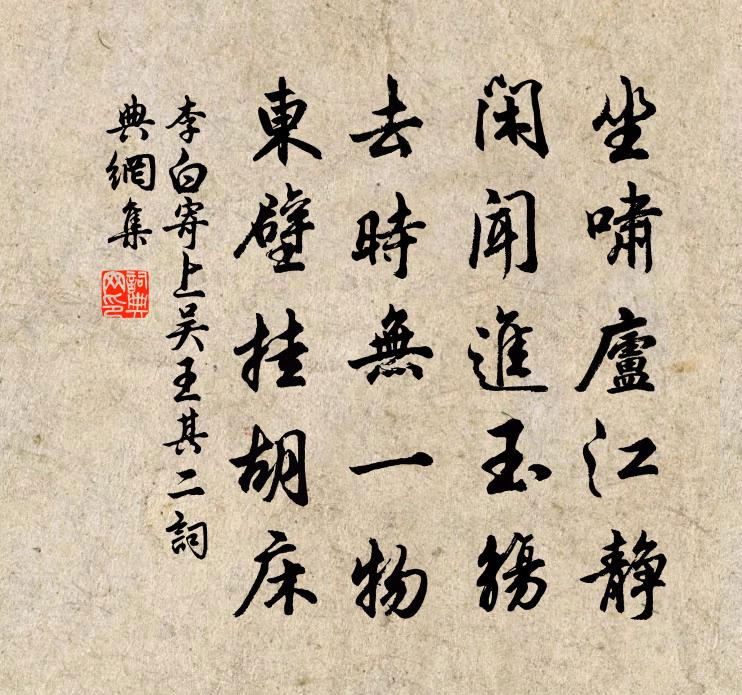 坐嘯廬江靜
閑聞進玉觴
去時無一物
東壁挂胡床
李白寄上吳王其二詞
典網集
詞典
网印